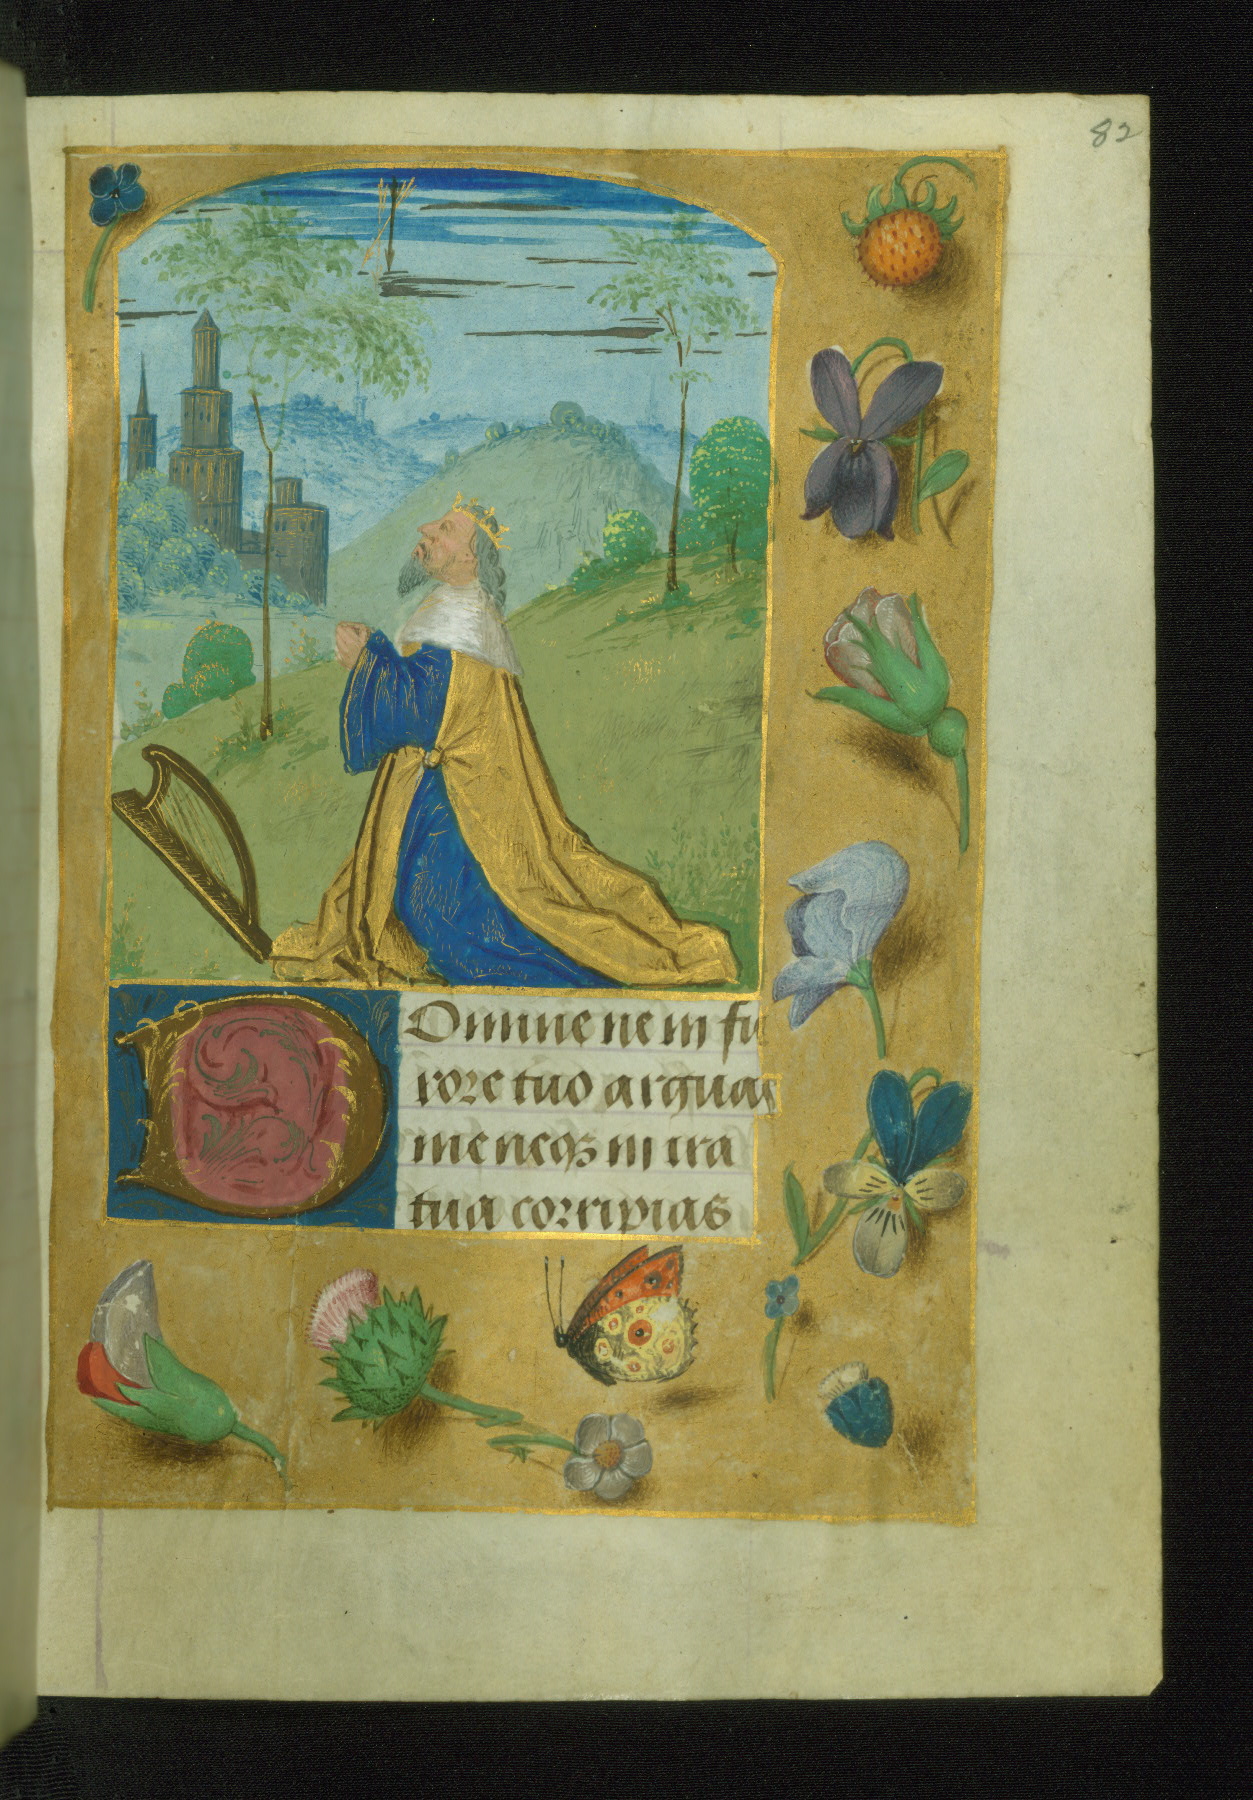 82
Domine ne in fu
rore tuo arguas
me neqȝ in ira
tua corripias